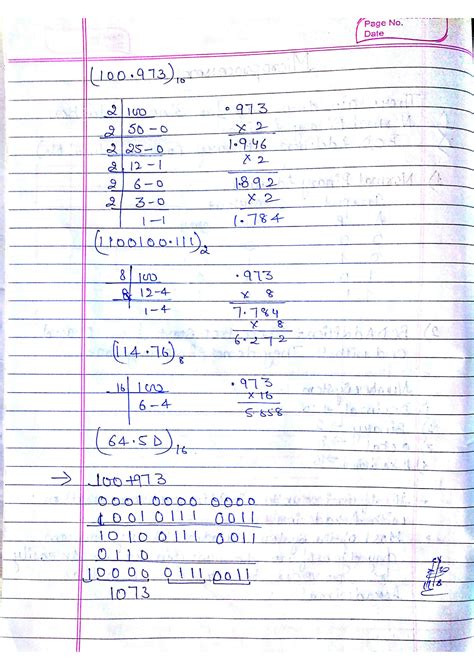 Page No.
Date
(100.973)₁₀
2 | 100 .973
2 | 50-0 x 2
2 | 25-0 1.946
2 | 12-1 x 2
2 | 6-0 1.892
2 | 3-0 x 2
1-1 1.784
(1100100.111)₂
8 | 100 .973
8 | 12-4 x 8
1-4 7.784
x 8
6.272
(14.76)₈
16 | 100 .973
6-4 x 16
(64.5D)₁₆
→ 100+973
0001 0000 0000
1001 0111 0011
1010 0111 0011
0110
10000 0111 0011
1073